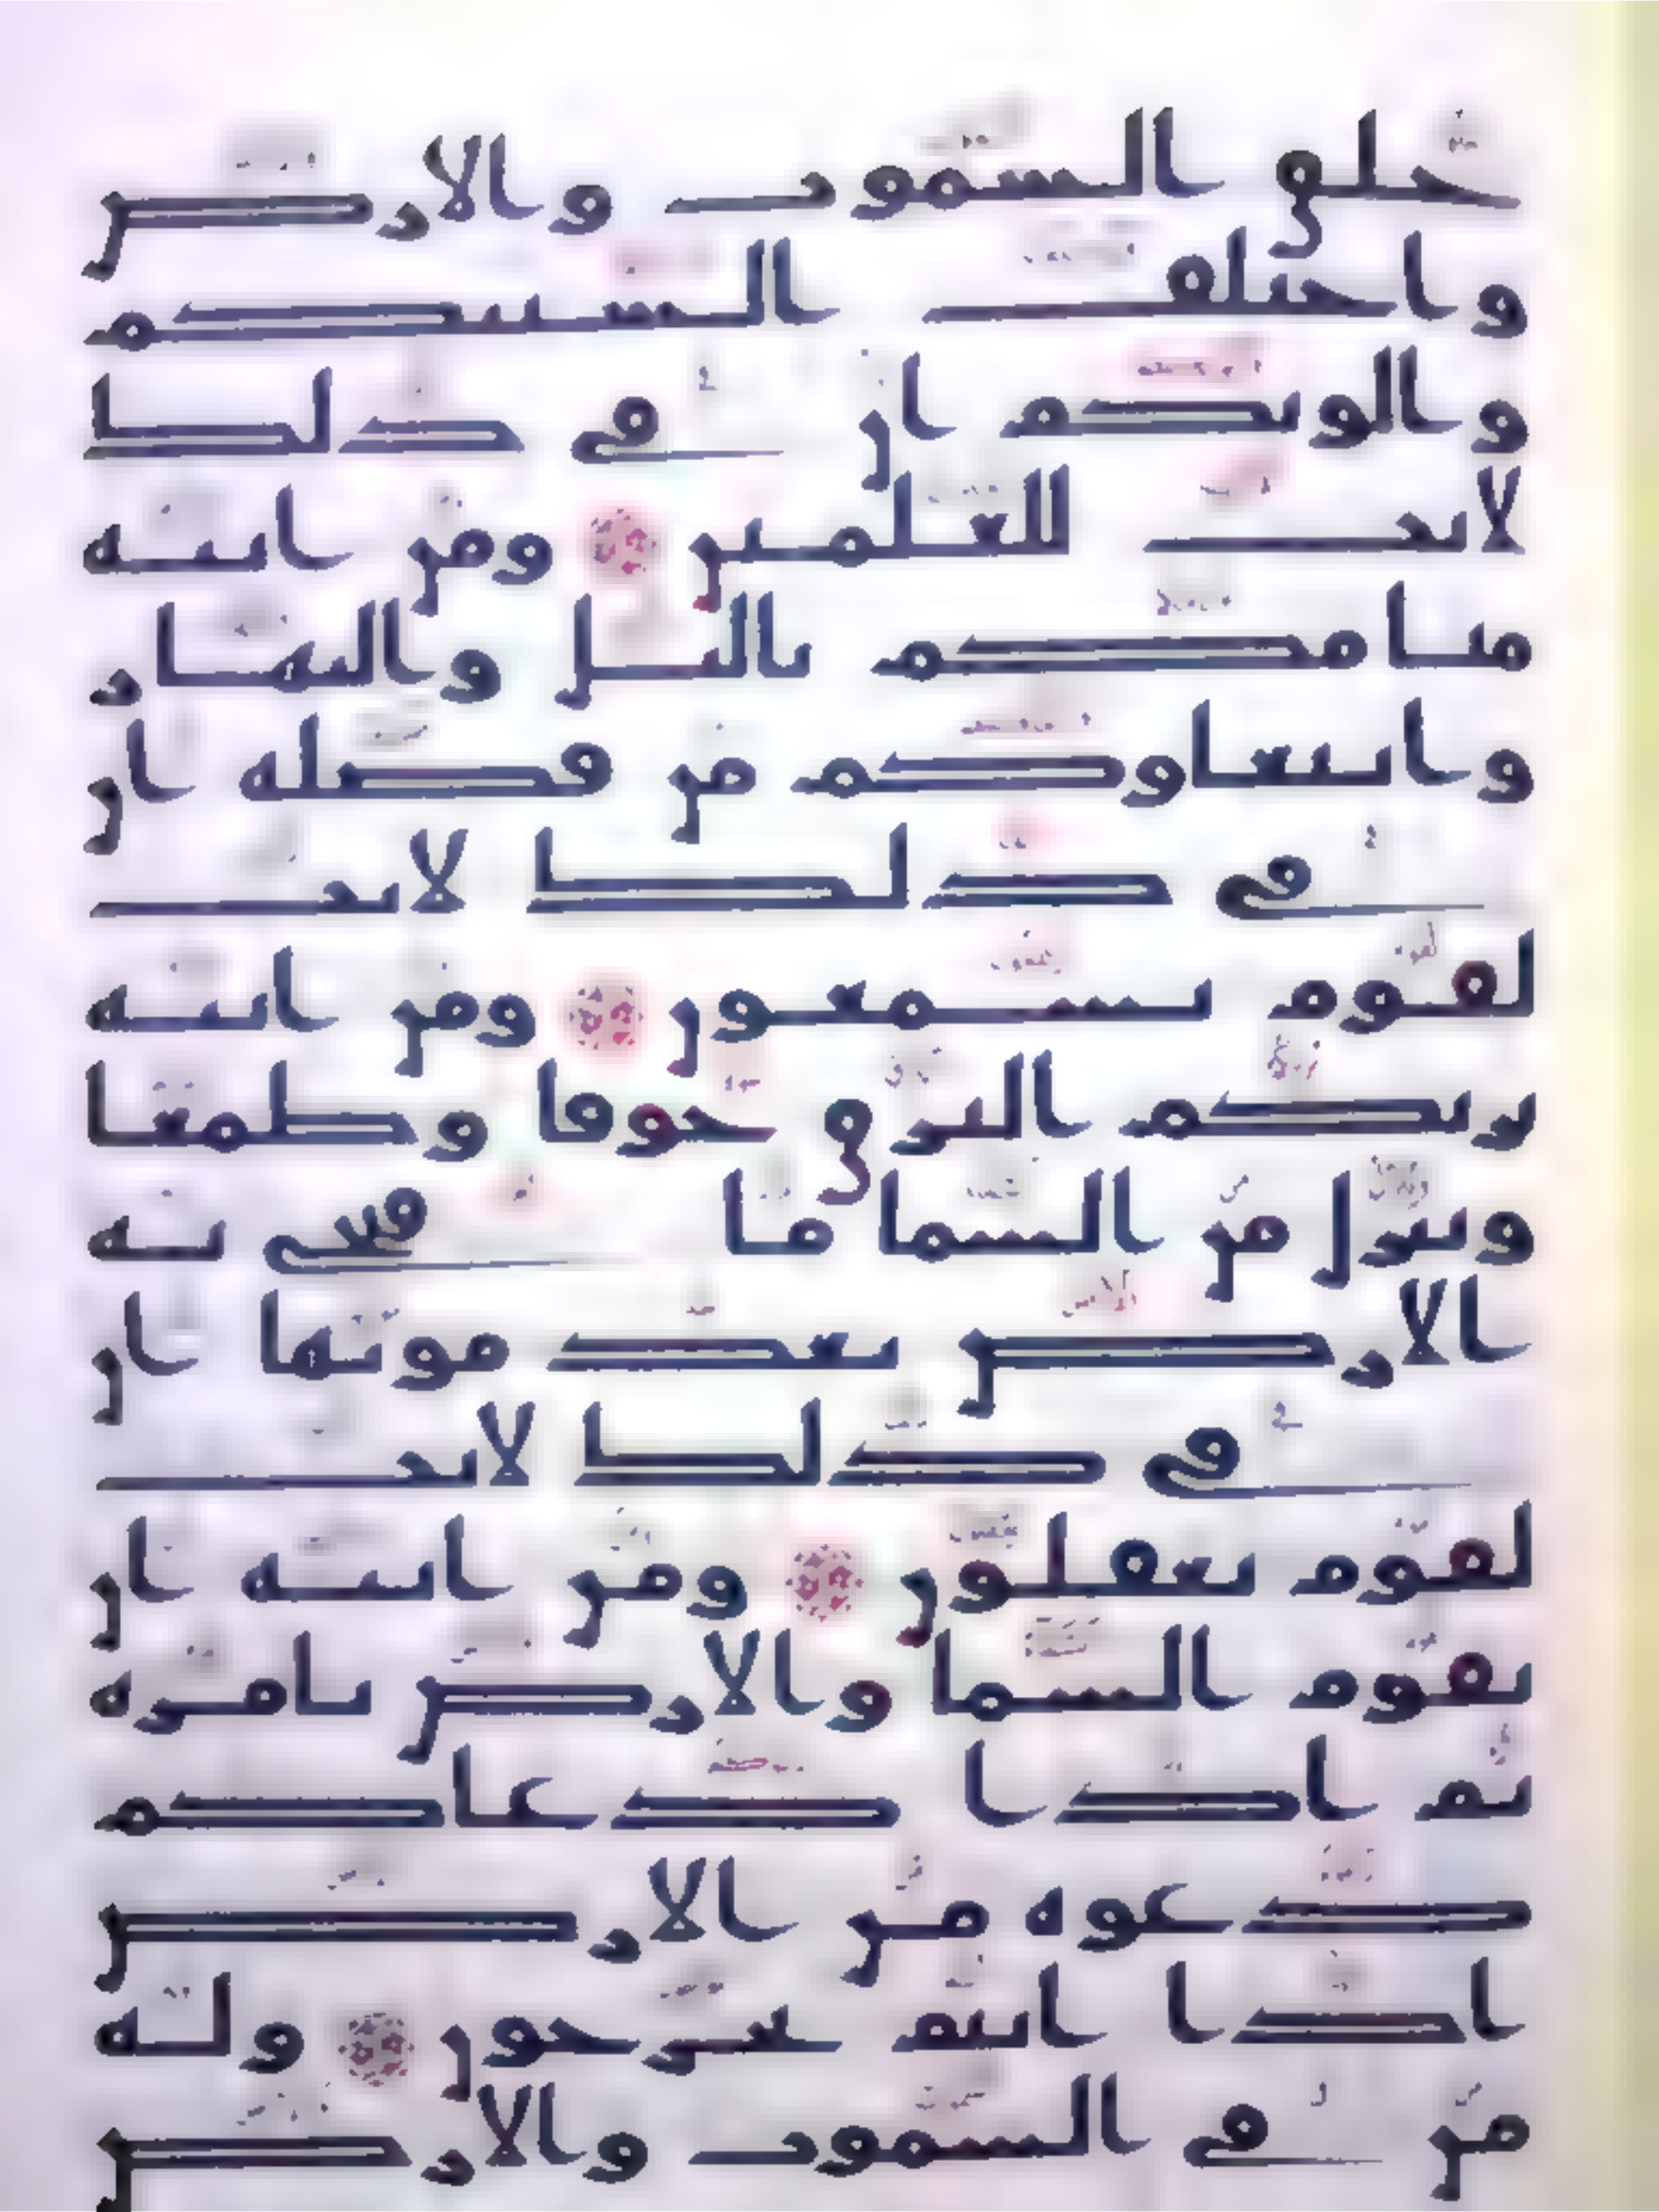 خلق السموت والارض
واختلف السنتكم
والونكم ان في ذلك
لايت للعلمين ومن ايته
منامكم باليل والنهار
وابتغاوكم من فضله ان
في ذلك لايت
لقوم يسمعون ومن ايته
يريكم البرق خوفا وطمعا
وينزل من السما ما فيحي به
الارض بعد موتها ان
في ذلك لايت
لقوم يعقلون ومن ايته ان
تقوم السما والارض بامره
ثم اذا دعاكم
دعوه من الارض
اذا انتم تخرجون وله
من في السموت والارض